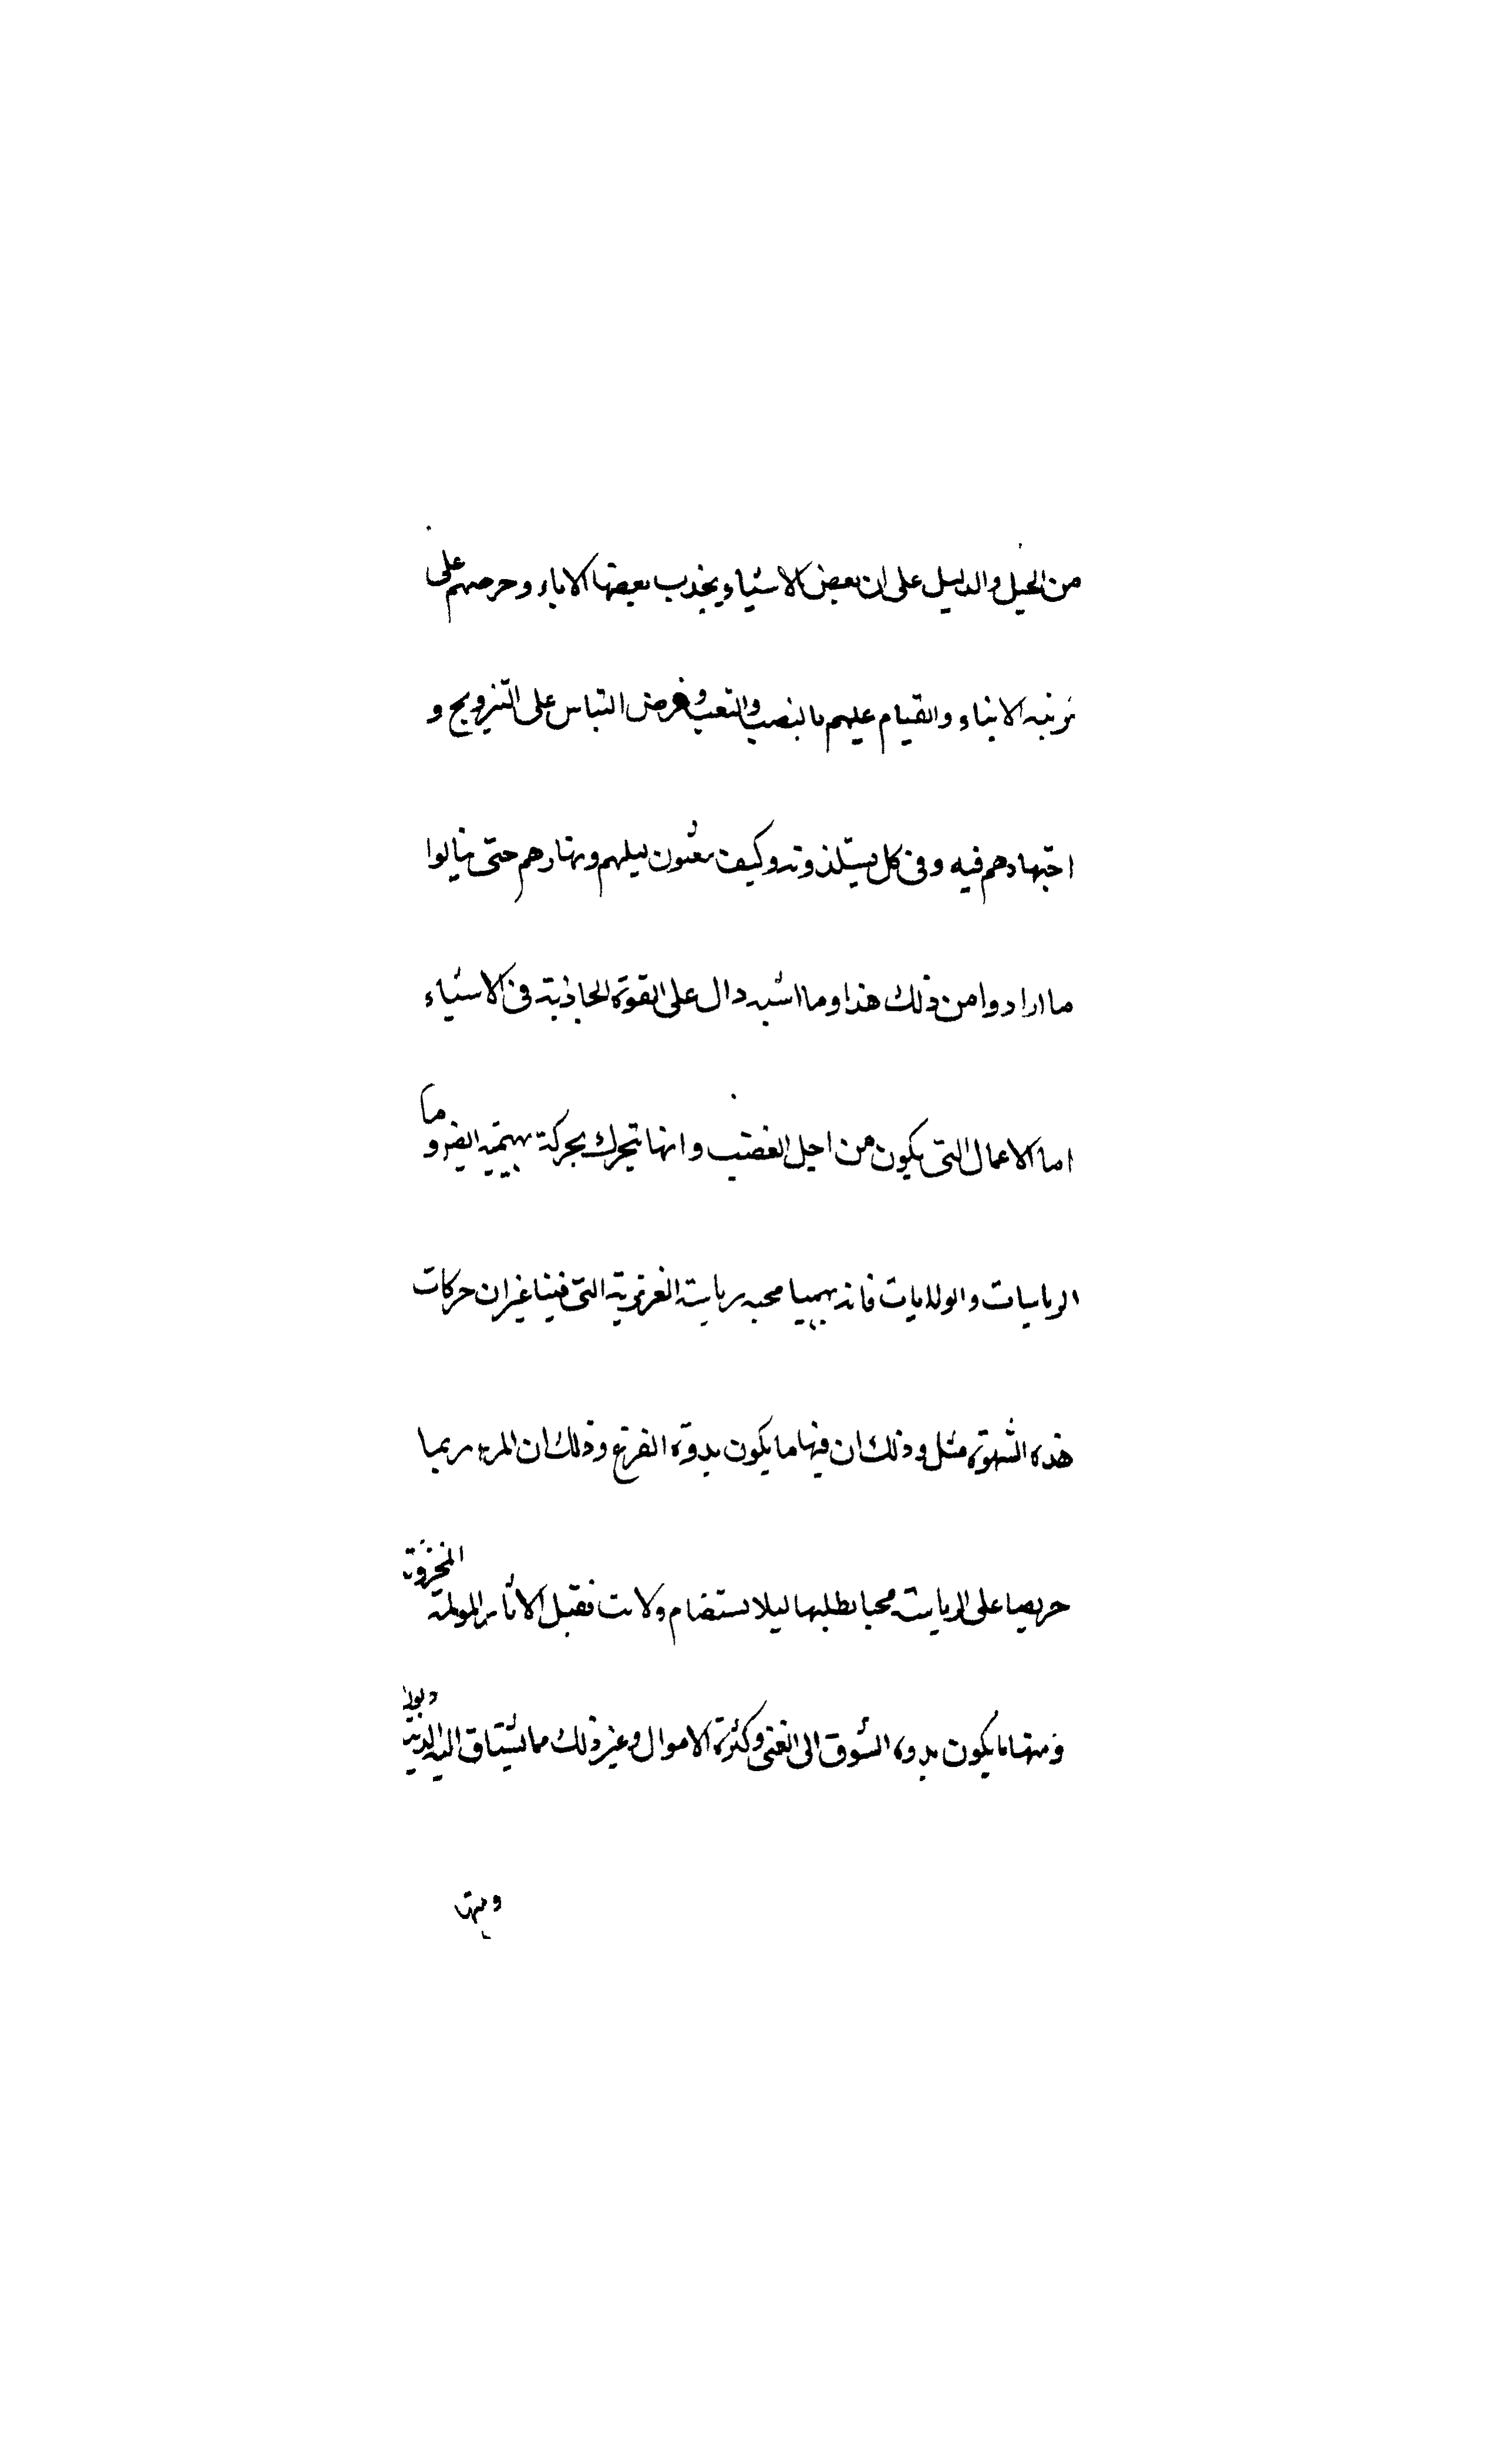 من الحيل والدليل على ان بعض الاشياء يجذب بعضها الاباء وحرصهم على
تربية الابناء والقيام عليهم بالنصب والتعب وفرض الناس على التزويج و
اجتهادهم فيه وفى كل يستلذونه وكيف يفنون ليلهم ونهارهم حتى ينالوا
ما ارادوا من ذلك هذا وما اشبه دال على القوة الجاذبة فى الاشياء
اما الاعمال التى يكون من اجل الغضب وانها تتحرك بحركة بهيمية ايضا وما
الرياسات والولايات فانه يهيجها محبه رياسة الغريزية التى فينا غير ان حركات
هذه الشهوة مثل وذلك ان فيها ما يكون بدوه الفزع وذلك ان المرء ربما
حريصا على الرياسة محبا لطلبها ليلا يستضام ولا فيقبل الاثار المولمة المحزنة
ومنها ما يكون بدوه الشوق الى الغنى وكثرة الاموال وغير ذلك مما يشتاق اليه
ومنها